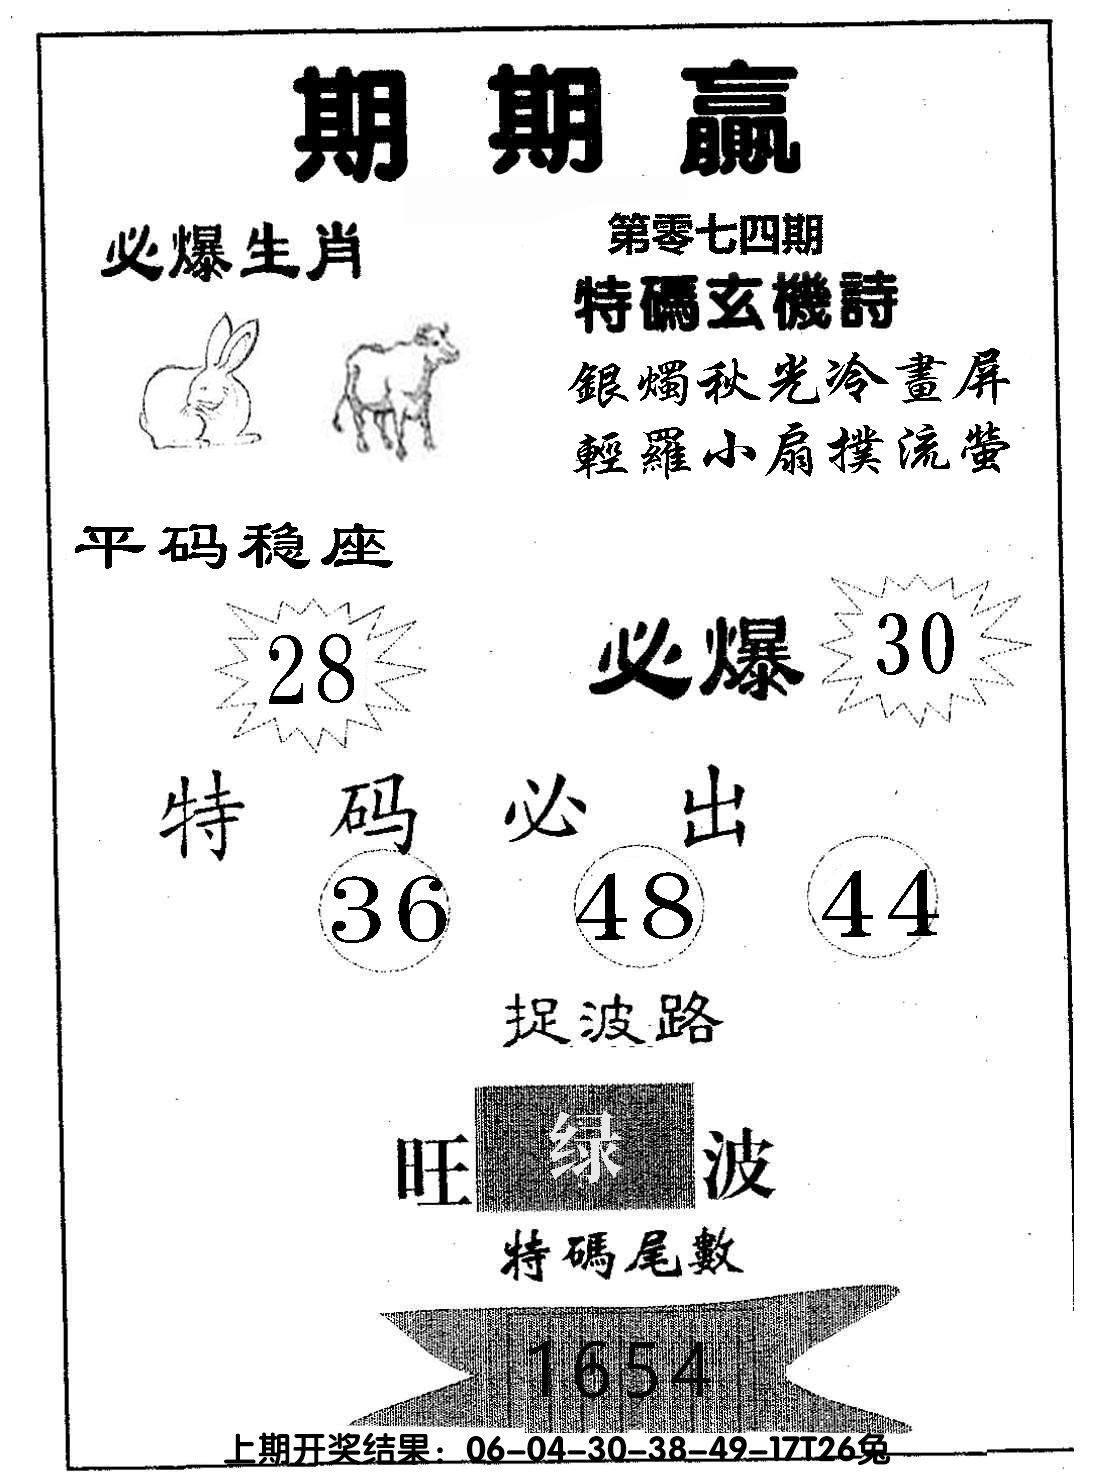 期期贏
必爆生肖
第零七四期
特碼玄機詩
銀燭秋光冷畫屏
輕羅小扇撲流螢
平码稳座
28
必爆
30
特码必出
36 48 44
捉波路
旺绿波
特碼尾數
1654
上期开奖结果：06-04-30-38-49-17T26兔